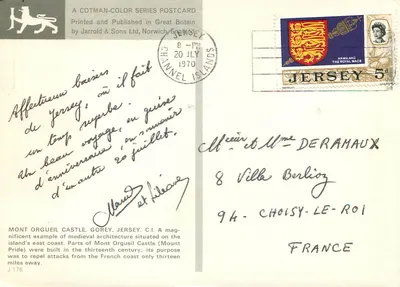 A COTMAN-COLOR SERIES POSTCARD
Printed and Published in Great Britain
by Jarrold & Sons Ltd, Norwich
JERSEY
6 - PM
20 JLY
1970
CHANNEL ISLANDS
ARMS AND
THE ROYAL MACE
JERSEY 5d
Affectueux baisers
de Jersey, où il fait
un temps superbe.
Un beau voyage, en guise
d'anniversaire, en souvenir
d'un autre 20 juillet.
et
MONT ORGUEIL CASTLE, GOREY, JERSEY, C.I. A mag-
nificent example of medieval architecture situated on the
island's east coast. Parts of Mont Orgueil Castle (Mount
Pride) were built in the thirteenth century, its purpose
was to repel attacks from the French coast only thirteen
miles away.
J 175
Msieur & Mme DERAMAUX
8 Villa Berlioz
94 - CHOISY-LE-ROI
FRANCE